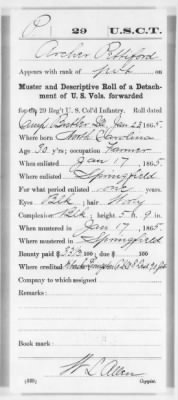 P 29 U.S.C.T.
Archer Pettiford
Appears with rank of Pvt on
Muster and Descriptive Roll of a Detach-
ment of U. S. Vols. forwarded
for the 29 Reg't U. S. Col'd Infantry. Roll dated
Camp Butler Ill. Jan 23, 1865.
Where born North Carolina
Age 30 y'rs; occupation Farmer
When enlisted Jan 17, 1865.
Where enlisted Springfield
For what period enlisted one years.
Eyes Blk; hair Wory
Complexion Blk; height 5 ft. 9 in.
When mustered in Jan 17, 1865.
Where mustered in Springfield
Bounty paid $ 33 /100; due $ /100
Where credited
Company to which assigned
Remarks:
Book mark:
W L Allen
(339) Copyist.